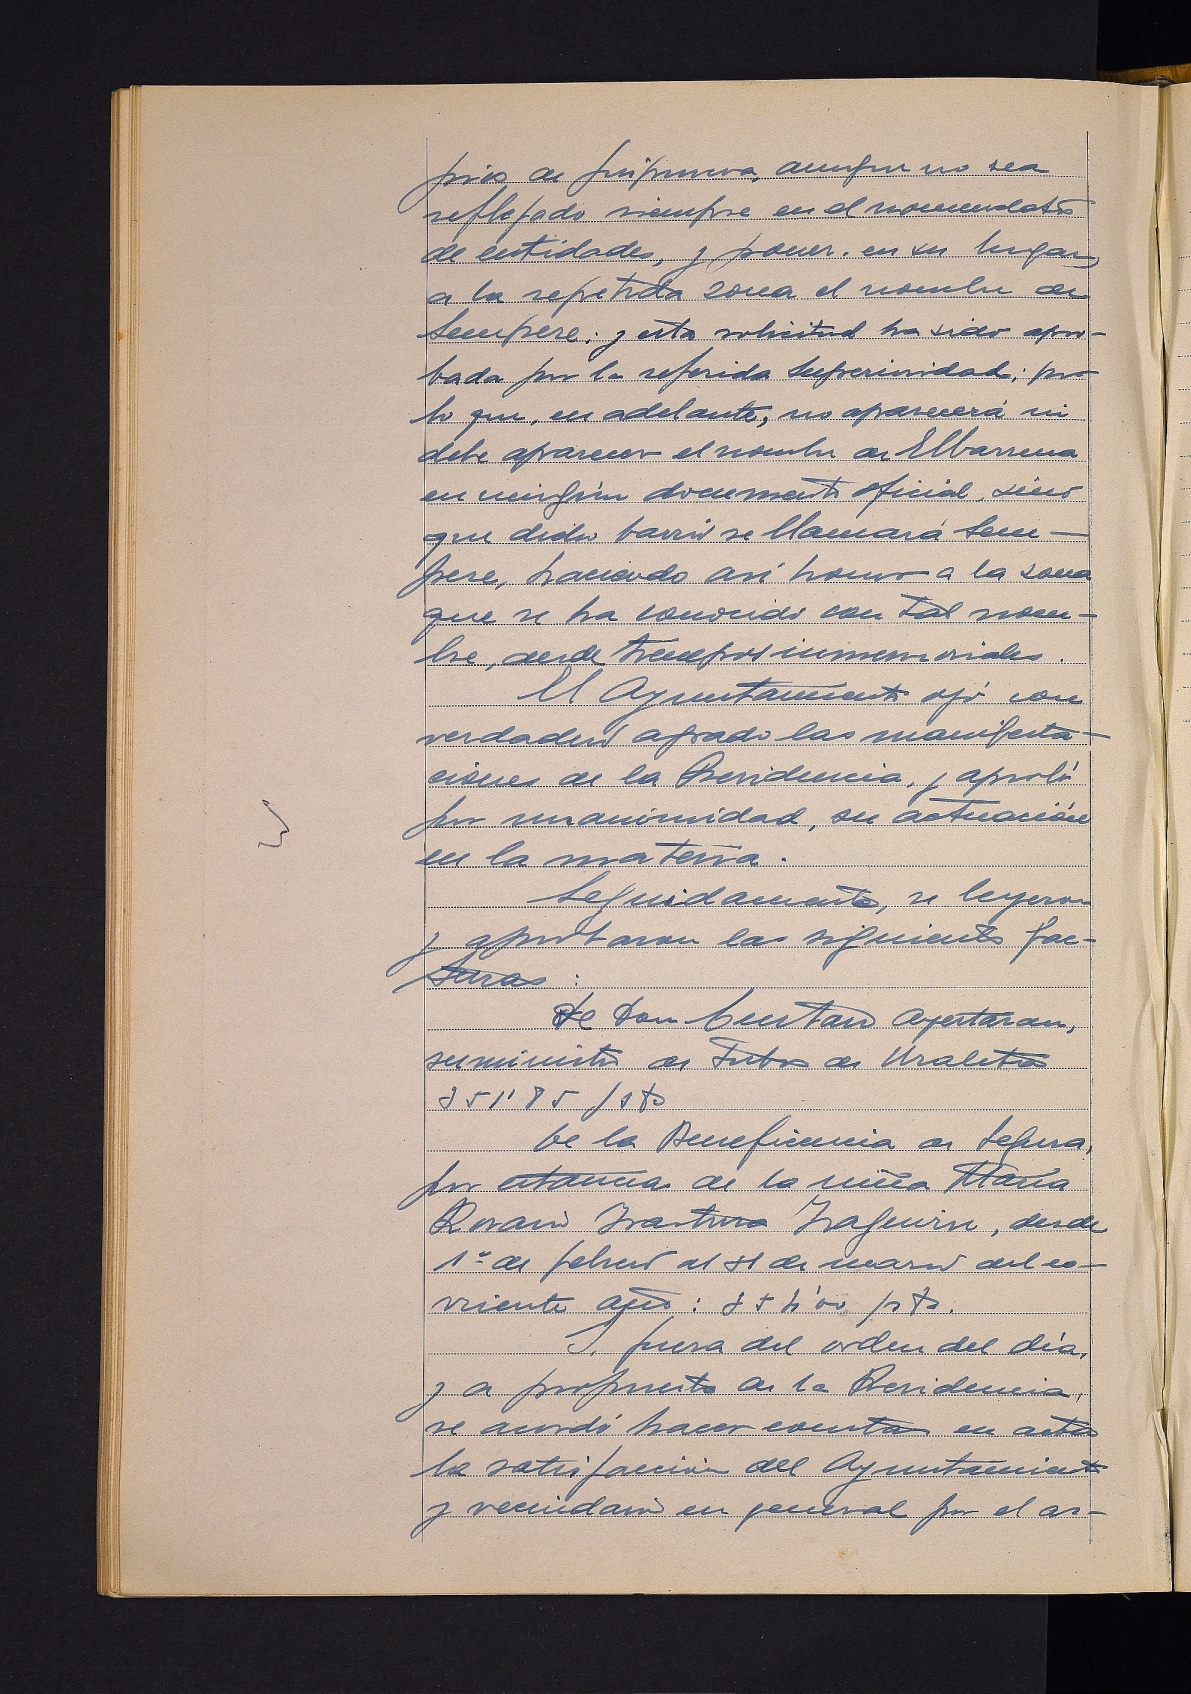 de Guipuzcoa, aunque no sea
reflejado siempre en el nomenclator
de entidades, y poner en su lugar
a la repetida zona el nombre de
Sempere; y esta solicitud ha sido apro-
bada por la referida Superioridad; por
lo que, en adelante, no aparecerá ni
debe aparecer el nombre de Elbarrena
en ningún documento oficial, sino
que dicho barrio se llamará Sem-
pere, haciendo así honor a la zona
que se ha conocido con tal nom-
bre, desde tiempos inmemoriales.
El Ayuntamiento oyó con
verdadero agrado las manifesta-
ciones de la Presidencia, y aprobó
por unanimidad, su actuación
en la materia.
Seguidamente, se leyeron
y aprobaron las siguientes fac-
turas:
De Don Ayestaran,
suministro de Tubos de Uralita
De la Beneficencia de Segura,
por estancia de la niña María
Rosario desde
1º de febrero al 31 de marzo del co-
rriente año: pts.
Y, fuera del orden del día,
y a propuesta de la Presidencia,
se acordó hacer constar en acta
la satisfacción del Ayuntamiento
y vecindario en general por el as-